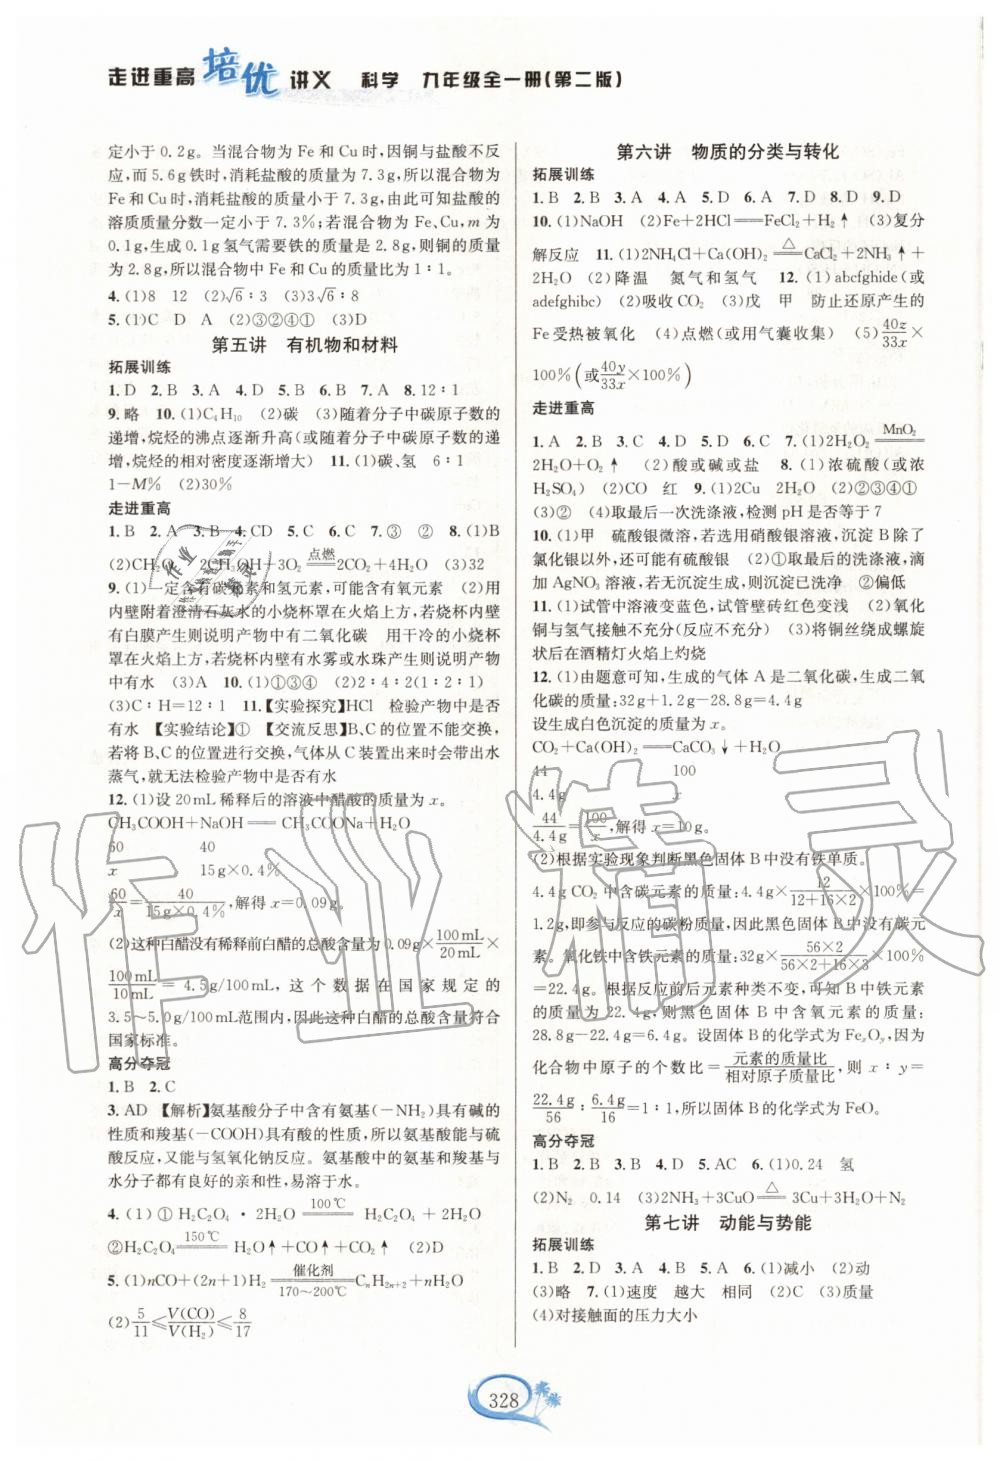 走进重高培优讲义 科学 九年级全一册(第二版)
定小于0.2g。当混合物为Fe和Cu时,因铜与盐酸不反
应,而5.6g铁时,消耗盐酸的质量为7.3g,混合物为
Fe和Cu时,消耗盐酸的质量小于7.3g,由此可知盐酸的
溶质质量分数一定小于7.3%;若混合物为Fe、Cu,m为
0.1g,生成0.1g氢气需要铁的质量是2.8g,则铜的质量
为2.8g,所以混合物中Fe和Cu的质量比为1∶1。
4.(1)8 12 (2)√6∶3 (3)3√6∶8
5.(1)C D A (2)③②④① (3)D
第五讲 有机物和材料
拓展训练
1.D 2.B 3.A 4.D 5.B 6.B 7.A 8.12∶1
9.略 10.(1)C₄H₁₀ (2)碳 (3)随着分子中碳原子数的
递增,烷烃的沸点逐渐升高(或随着分子中碳原子数的递
增,烷烃的相对密度逐渐增大) 11.(1)碳、氢 6∶1
1-M% (2)30%
走进重高
1.B 2.A 3.B 4.CD 5.C 6.C 7.③ ② 8.(1)B
(2)CH₂O 2CH₃OH+3O₂ =点燃= 2CO₂+4H₂O (3)32
9.(1)一定含有碳元素和氢元素,可能含有氧元素 (2)用
内壁附着澄清石灰水的小烧杯罩在火焰上方,若烧杯内壁
有白膜产生则说明产物中有二氧化碳 用干冷的小烧杯
罩在火焰上方,若烧杯内壁有水雾或水珠产生则说明产物
中有水 (3)A 10.(1)①③④ (2)2∶4∶2(1∶2∶1)
(3)C∶H=12∶1 11.【实验探究】HCl 检验产物中是否
有水 【实验结论】① 【交流反思】B、C的位置不能交换,
若将B、C的位置进行交换,气体从C装置出来时会带出水
蒸气,就无法检验产物中是否有水
12.(1)设20mL稀释后的溶液中醋酸的质量为x。
CH₃COOH+NaOH══CH₃COONa+H₂O
60 40
x 15g×0.4%
60/x=40/(15g×0.4%),解得x=0.09g。
(2)这种白醋没有稀释前白醋的总酸含量为0.09g×100mL/20mL×
100mL/10mL=4.5g/100mL,这个数据在国家规定的
3.5~5.0g/100mL范围内,因此这种白醋的总酸含量符合
国家标准。
高分夺冠
1.B 2.C
3.AD 【解析】氨基酸分子中含有氨基(-NH₂)具有碱的
性质和羧基(-COOH)具有酸的性质,所以氨基酸能与硫
酸反应,又能与氢氧化钠反应。氨基酸中的氨基和羧基与
水分子都有良好的亲和性,易溶于水。
4.(1)①H₂C₂O₄·2H₂O =100℃= H₂C₂O₄+2H₂O
②H₂C₂O₄ =150℃= H₂O↑+CO↑+CO₂↑ (2)D
5.(1)nCO+(2n+1)H₂ =催化剂/170~200℃= CₙH₂ₙ₊₂+nH₂O
(2)5/11≤V(CO)/V(H₂)≤8/17
第六讲 物质的分类与转化
拓展训练
1.B 2.B 3.A 4.A 5.D 6.A 7.D 8.D 9.D
10.(1)NaOH (2)Fe+2HCl══FeCl₂+H₂↑ (3)复分
解反应 11.(1)2NH₄Cl+Ca(OH)₂ =△= CaCl₂+2NH₃↑+
2H₂O (2)降温 氮气和氢气 12.(1)abcfghide(或
adefghibc) (2)吸收CO₂ (3)戊 甲 防止还原产生的
Fe受热被氧化 (4)点燃(或用气囊收集) (5)40z/33x×
100%(或40y/33x×100%)
走进重高
1.A 2.B 3.C 4.D 5.D 6.C 7.(1)2H₂O₂ =MnO₂=
2H₂O+O₂↑ (2)酸或碱或盐 8.(1)浓硫酸(或浓
H₂SO₄) (2)CO 红 9.(1)2Cu 2H₂O (2)②③④①
(3)② (4)取最后一次洗涤液,检测pH是否等于7
10.(1)甲 硫酸银微溶,若选用硝酸银溶液,沉淀B除了
氯化银以外,还可能有硫酸银 (2)①取最后的洗涤液,滴
加AgNO₃溶液,若无沉淀生成,则沉淀已洗净 ②偏低
11.(1)试管中溶液变蓝色,试管壁砖红色变浅 (2)氧化
铜与氢气接触不充分(反应不充分) (3)将铜丝绕成螺旋
状后在酒精灯火焰上灼烧
12.(1)由题意可知,生成的气体A是二氧化碳,生成二氧
化碳的质量:32g+1.2g-28.8g=4.4g
设生成白色沉淀的质量为x。
CO₂+Ca(OH)₂══CaCO₃↓+H₂O
44 100
4.4g x
44/4.4g=100/x,解得x=10g。
(2)根据实验现象判断黑色固体B中没有铁单质。
4.4gCO₂中含碳元素的质量:4.4g×12/(12+16×2)×100%=
1.2g,即参与反应的碳粉质量,因此黑色固体B中没有碳元
素。氧化铁中含铁元素的质量:32g×56×2/(56×2+16×3)×100%
=22.4g。根据反应前后元素种类不变,可知B中铁元素的
质量为22.4g,则黑色固体B中含氧元素的质量:
28.8g-22.4g=6.4g。设固体B的化学式为FeₓOᵧ,利用
化合物中原子的个数比=元素的质量比/相对原子质量比,则x∶y=
22.4g/56∶6.4g/16=1∶1,所以固体B的化学式为FeO。
高分夺冠
1.B 2.B 3.B 4.D 5.AC 6.(1)0.24 氢
(2)N₂ 0.14 (3)2NH₃+3CuO =△= 3Cu+3H₂O+N₂
第七讲 动能与势能
拓展训练
1.B 2.D 3.B 4.A 5.A 6.(1)减小 (2)动
(3)略 7.(1)速度 越大 相同 (2)C (3)质量
(4)对接触面的压力大小
328
作业精灵